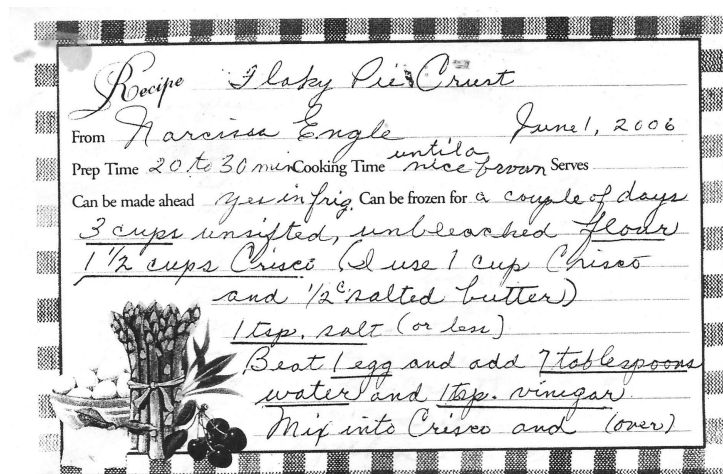 Recipe Flaky Pie Crust
From Narcissa Engle June 1, 2006
Prep Time 20 to 30 min Cooking Time until a nice brown Serves
Can be made ahead yes in frig. Can be frozen for a couple of days
3 cups unsifted, unbleached flour
1 1/2 cups Crisco (I use 1 cup Crisco
and 1/2 c salted butter)
1 tsp. salt (or less)
Beat 1 egg and add 7 tablespoons
water and 1 tsp. vinegar
Mix into Crisco and (over)